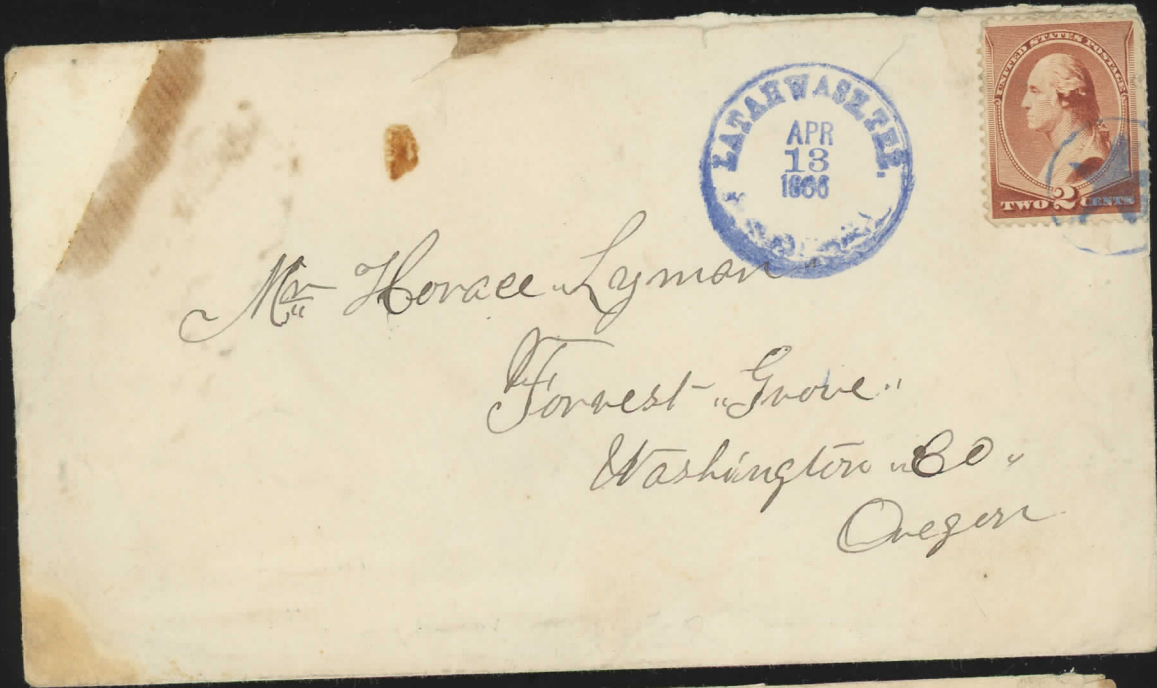 LATAH WASH. TER.
APR
13
1886
UNITED STATES POSTAGE
TWO 2 CENTS
Mr Horace Lyman
Forrest "Grove"
Washington "Co"
Oregon